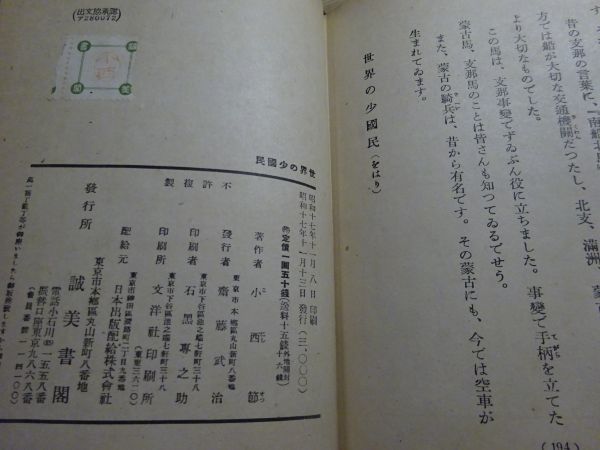 昔の支那の言葉に、「南船北馬
方では船が大切な交通機關だつたし、北支、滿洲
より大切なものでした。
この馬は、支那事變でずゐぶん役に立ちました。事變で手柄を立てた
蒙古馬、支那馬のことは皆さんも知つてゐるでせう。
また、蒙古の騎兵は、昔から有名です。その蒙古にも、今では空車が
生まれてゐます。
世界の少國民(をはり)
(194)
出文協承認
ア280072
世界の少國民
不許複製
昭和十七年十一月八日印刷
昭和十七年十一月十三日發行(三〇〇〇)
定價一圓五十錢
著作者 小西節
東京市本鄉區丸山新町八番地
發行者 齋藤武治
東京市下谷區池之端七軒町三十八
印刷者 石黑專之助
東京市下谷區池之端七軒町三十八
印刷所 文洋社印刷所
東京市神田區淡路町二丁目九番地
配給元 日本出版配給株式會社
東京市本鄉區丸山新町八番地
發行所 誠美書閣
電話小石川(85)一五五八番
振替口座東京九八六八番